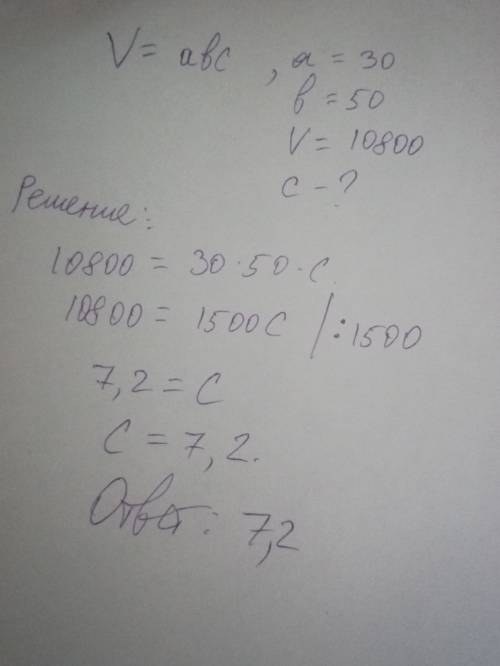 V = abc , a = 30
b = 50
V = 10800
c - ?
Решение:
10800 = 30·50·c
10800 = 1500c |:1500
7,2 = c
c = 7,2.
Ответ: 7,2